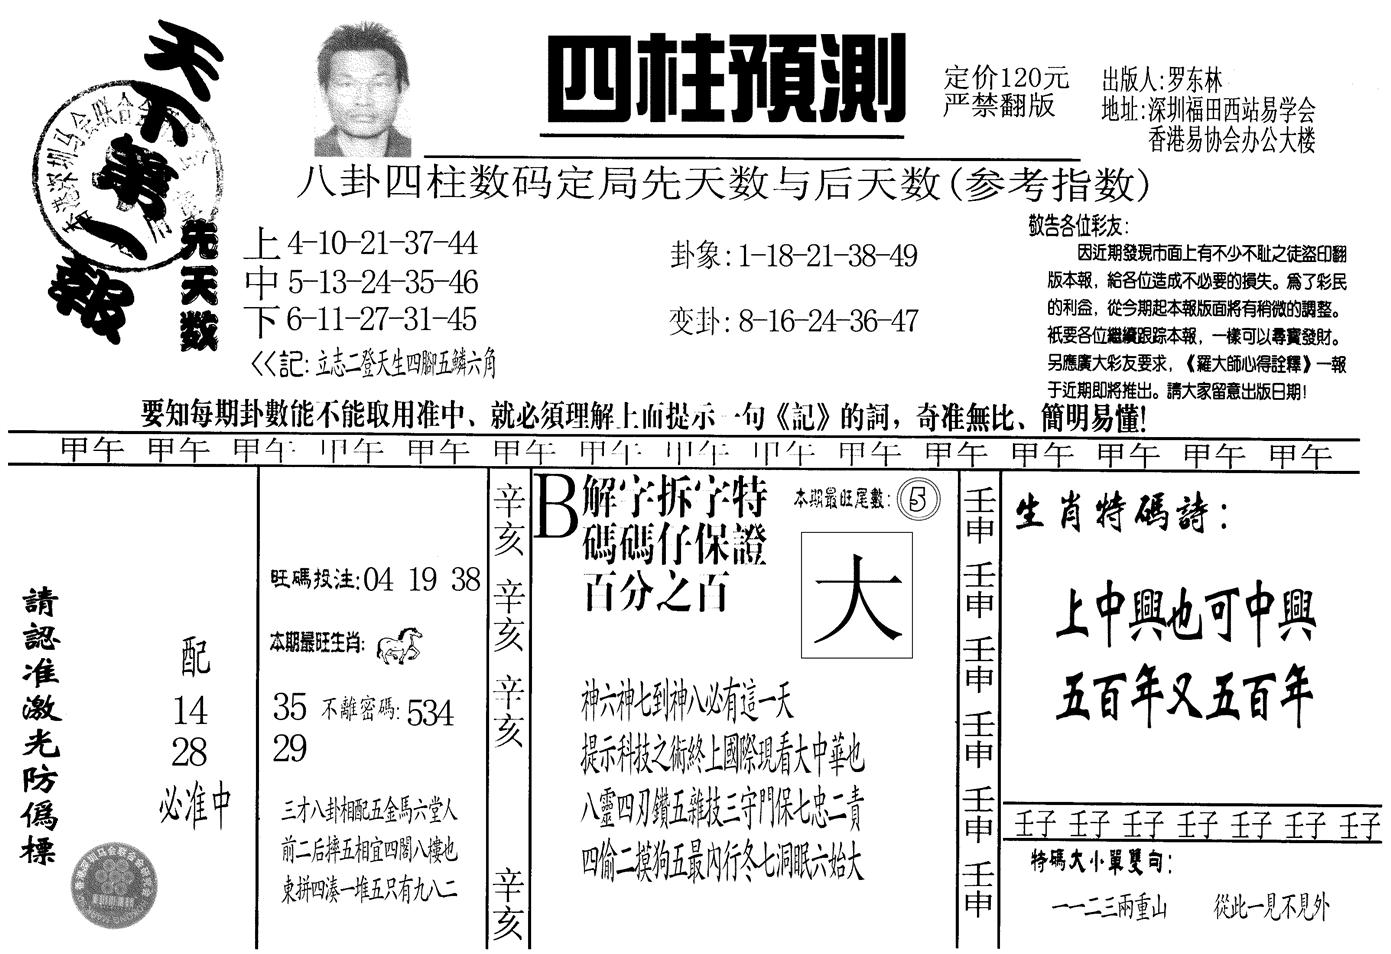 天下第一報
四柱預測
定价120元
严禁翻版
出版人:罗东林
地址:深圳福田西站易学会
香港易协会办公大楼
八卦四柱数码定局先天数与后天数(参考指数)
先天数
上 4-10-21-37-44
中 5-13-24-35-46
下 6-11-27-31-45
<<記:立志二登天生四腳五鱗六角
卦象:1-18-21-38-49
变卦:8-16-24-36-47
敬告各位彩友:
因近期發現市面上有不少不耻之徒盗印翻
版本報，給各位造成不必要的損失。爲了彩民
的利益，從今期起本報版面將有稍微的調整。
衹要各位繼續跟踪本報，一樣可以尋寳發財。
另應廣大彩友要求，《羅大師心得詮釋》一報
于近期即將推出。請大家留意出版日期!
要知每期卦數能不能取用准中、就必須理解上面提示一句《記》的詞，奇准無比、簡明易懂!
甲午 甲午 甲午 甲午 甲午 甲午 甲午 甲午 甲午 甲午 甲午 甲午 甲午 甲午 甲午
請認准激光防僞標
配
14
28
必准中
旺碼投注:04 19 38
本期最旺生肖:
35 不離密碼:534
29
三才八卦相配五金馬六堂人
前二后摔五相宜四閣八樓也
東拼四湊一堆五只有九八二
辛亥 辛亥 辛亥 辛亥
B
解字拆字特
碼碼仔保證
百分之百
本期最旺尾數:5
大
神六神七到神八必有這一天
提示科技之術終上國際現看大中華也
八靈四刃鑽五雜技三守門保七忠二責
四偷二摸狗五最内行冬七洞眠六始大
壬申 壬申 壬申 壬申 壬申 壬申
生肖特碼詩:
上中興也可中興
五百年又五百年
壬子 壬子 壬子 壬子 壬子 壬子 壬子
特碼大小單雙句:
一一二三兩重山 從此一見不見外